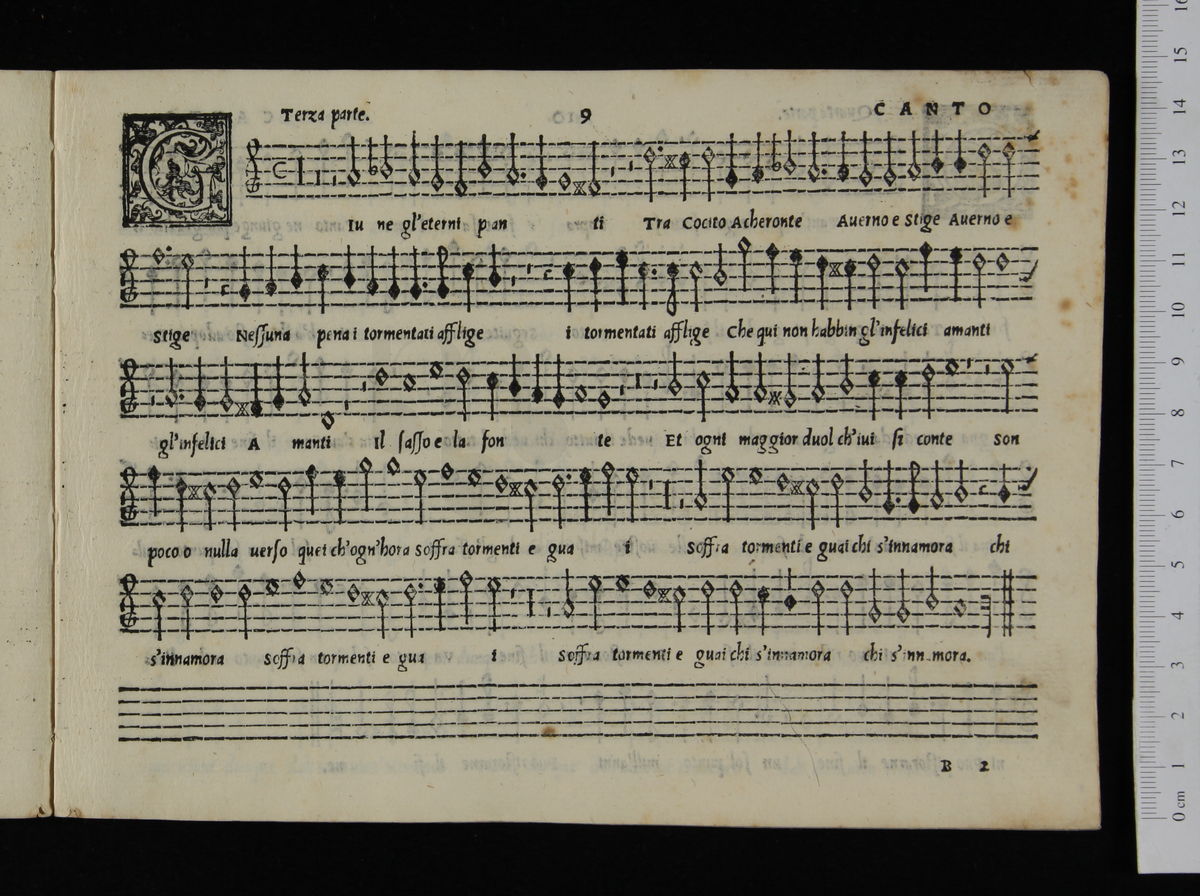 Terza parte. 9 CANTO
G Iu ne gl'eterni pian ti Tra Cocito Acheronte Auerno e Stige Auerno e
Stige Nessuna pena i tormentati afflige i tormentati afflige Che qui non habbin gl'infelici amanti
gl'infelici A manti Il sasso e la fon te Et ogni maggior duol ch'iui si conte son
poco o nulla uerso quei ch'ogn'hora soffra tormenti e gua i soffra tormenti e guai chi s'innamora chi
s'innamora soffra tormenti e gua i soffra tormenti e guai chi s'innamora chi s'innamora.
B 2
0 cm 1 2 3 4 5 6 7 8 9 10 11 12 13 14 15 16